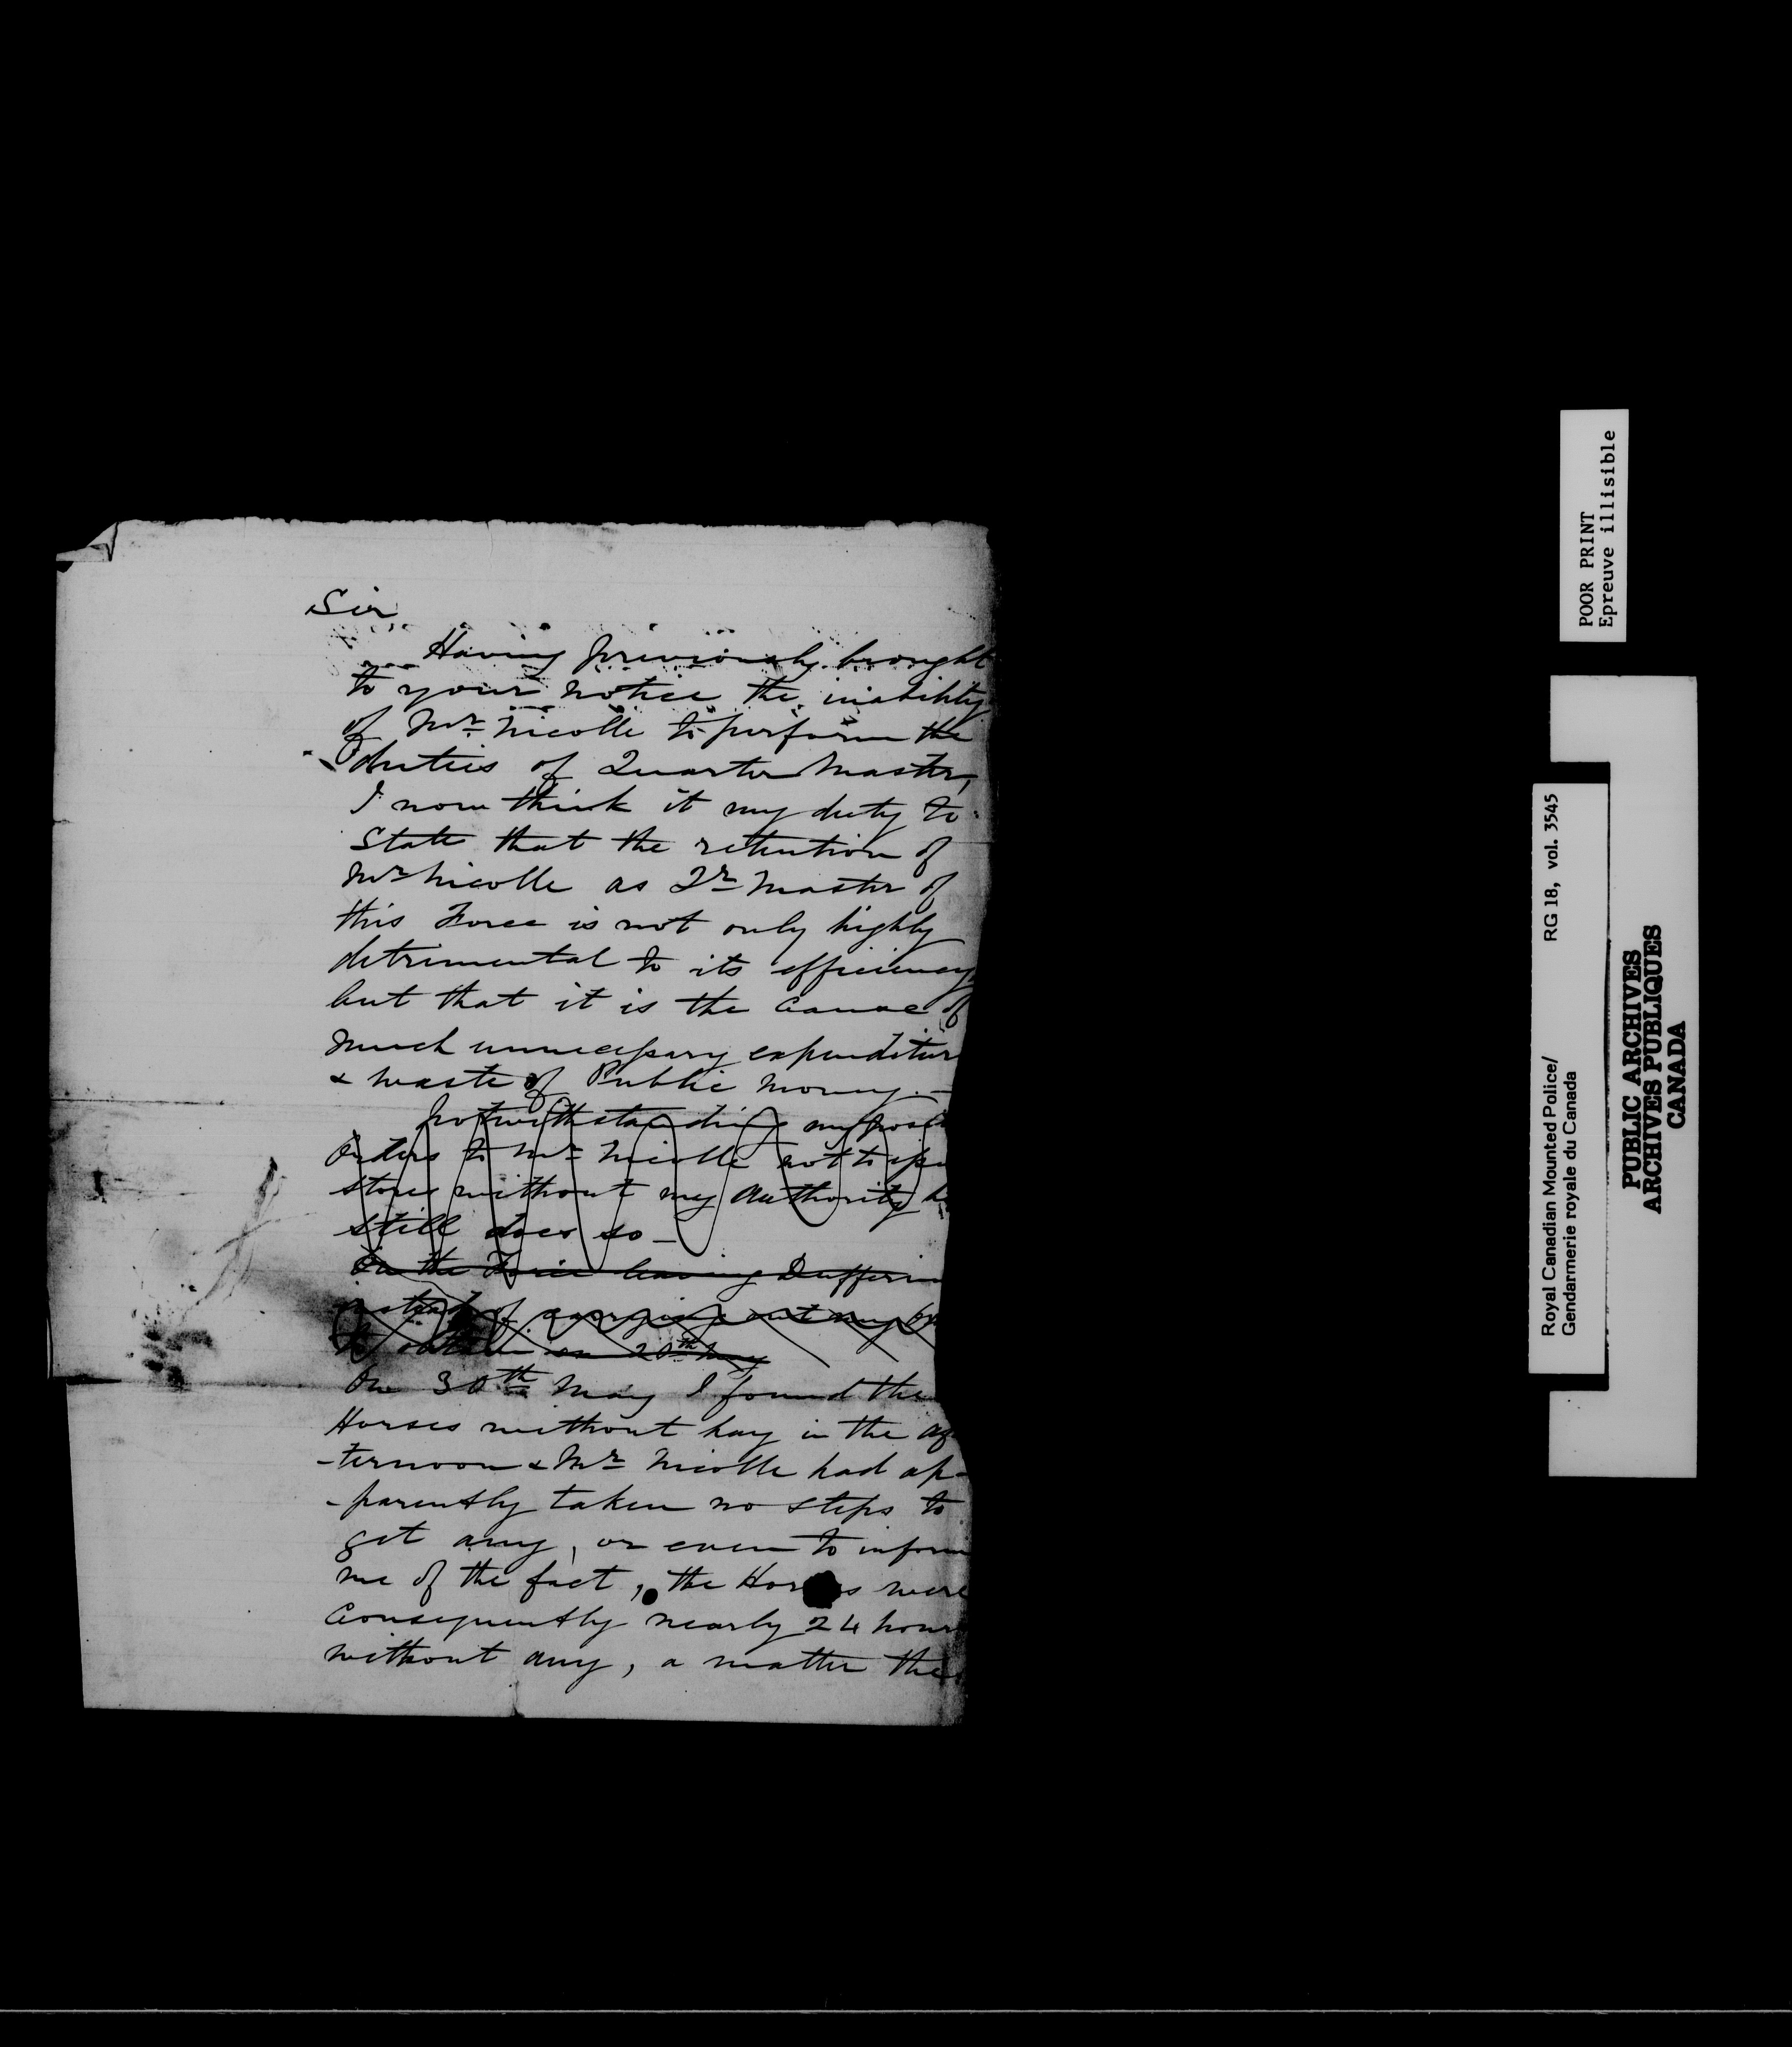 Sir
Having previously brought
to your notice the inability
of Mr Nicolle to perform the
duties of Quarter Master,
I now think it my duty to
State that the retention of
Mr Nicolle as Qr Master of
this Force is not only highly
detrimental to its efficiency
but that it is the cause of
much unnecessary expenditur
& waste of Public Money. —
Notwithstanding my
Orders to Mr Nicolle not to
stores without my authority he
still does so —
On the Force leaving Dufferin
instead of carrying out my
on 20th May
On 30th May I found the
Horses without hay in the af
-ternoon & Mr Nicolle had ap-
-parently taken no steps to
get any, or even to inform
me of the fact, the Horses were
Consequently nearly 24 hours
without any, a matter
POOR PRINT
Epreuve illisible
Royal Canadian Mounted Police/ RG 18, vol. 3545
Gendarmerie royale du Canada
PUBLIC ARCHIVES
ARCHIVES PUBLIQUES
CANADA